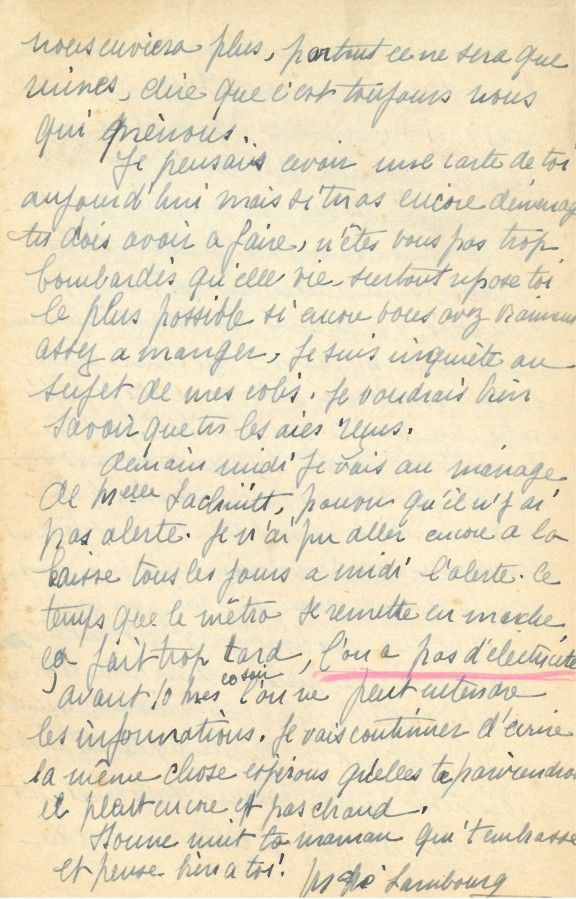 nous enviera plus, partout ce ne sera que
ruines, dire que c'est toujours nous
qui prenons.
Je pensais avoir une carte de toi
aujourd'hui mais si tu as encore déménag
tu dois avoir a faire, n'êtes vous pas trop
bombardés qu'elle vie surtout repose toi
le plus possible si encore vous avez vraiment
assez a manger, Je suis inquiète au
sujet de mes colis. Je voudrais bien
savoir que tu les aies reçus.
demain midi Je vais au mariage
de Melle, pourvu qu'il n'y ai
pas alerte. Je n'ai pu aller encore a la
caisse tous les jours a midi l'alerte. le
temps que le métro se remette en marche
ça fait trop tard, l'on a pas d'électricité
avant 10 hres ce soir l'on ne peut entendre
les informations. Je vais continuer d'écrire
la même chose espérons qu'elles te parviendron
il pleut encore et pas chaud.
Bonne nuit ta maman qui t'embrasse
et pense bien a toi.
Lambourg